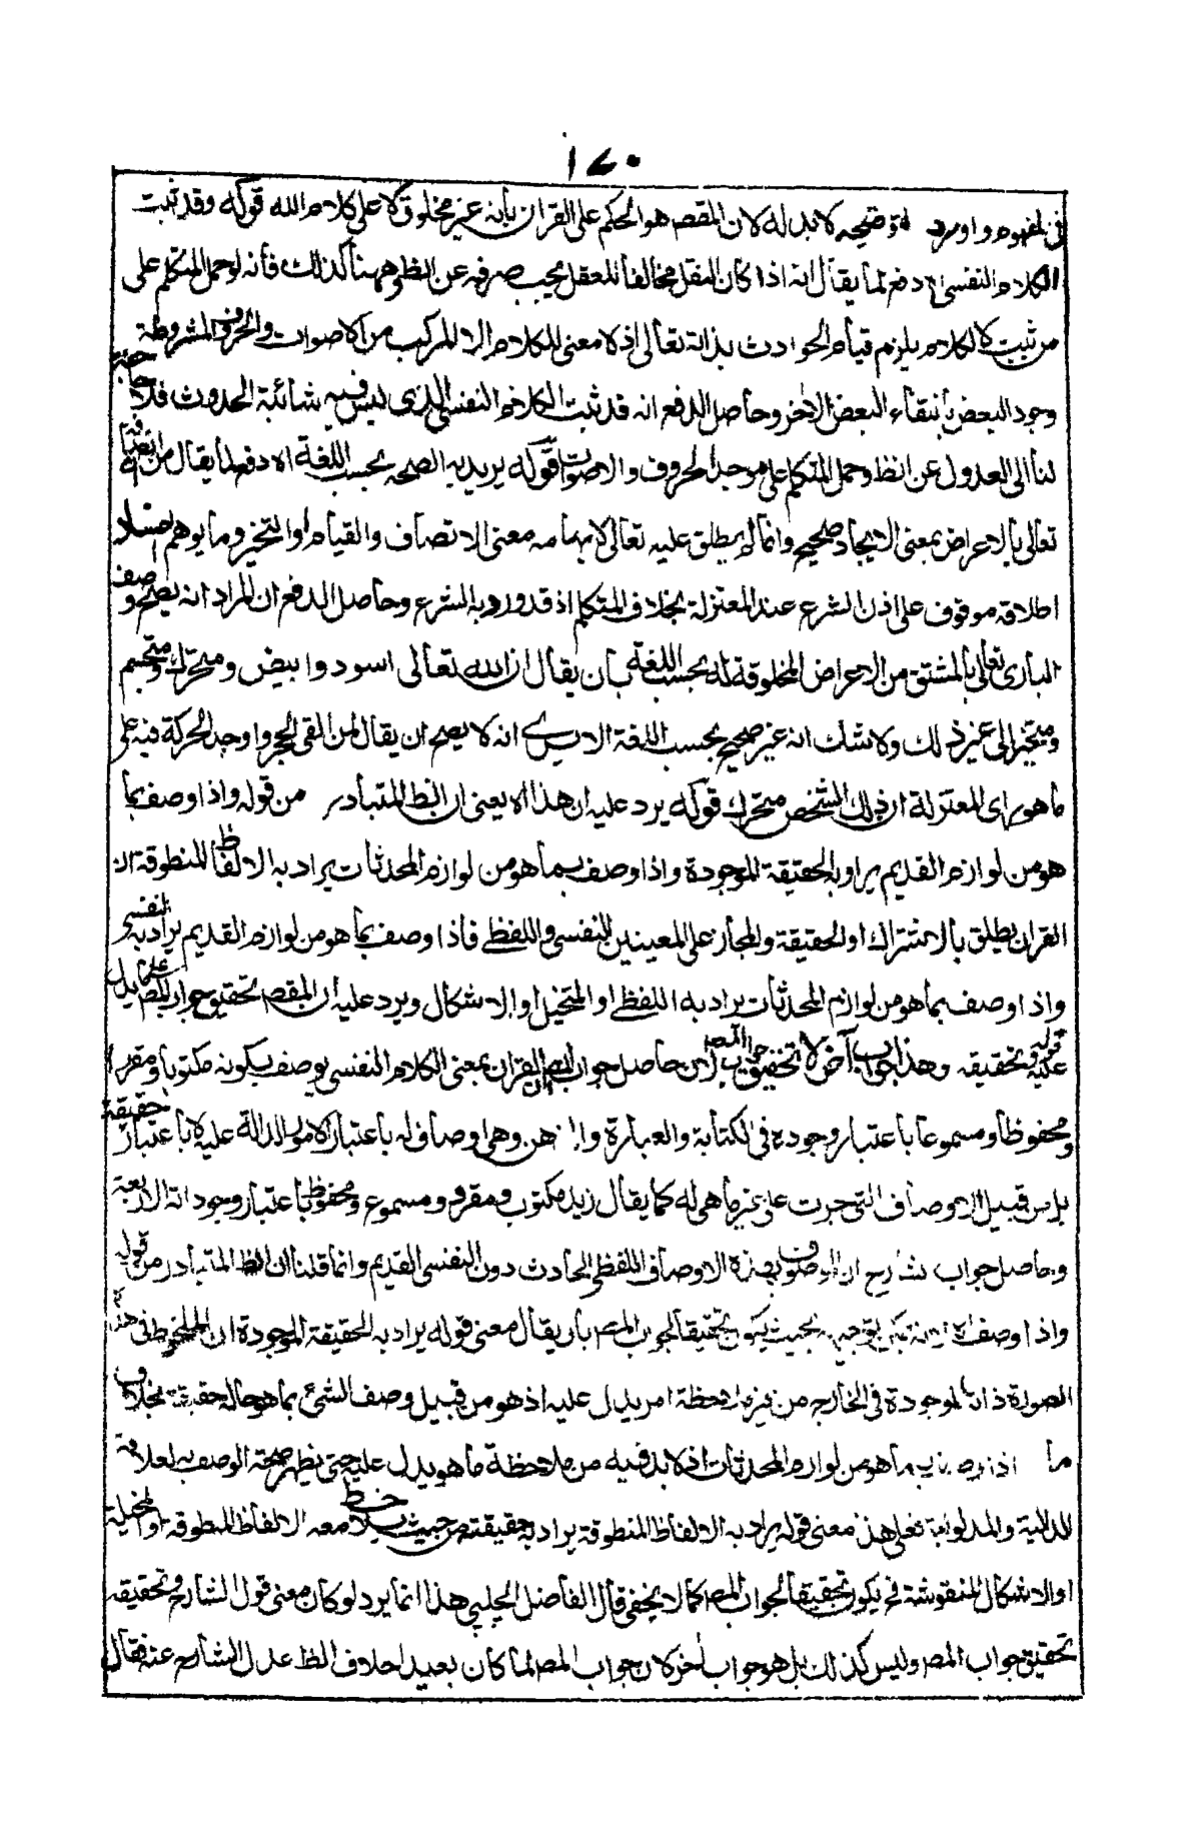 ١٧٠
في المفهوم واورد لتوضيحه كلا بدله لان المقص هو الحكم على القران بأنه غير مخلوق لا على كلام الله قوله وقد ثبت
الكلام النفسي اه دفع لما يقال انه اذا كان النقل مخالفا للعقل يجب صرفه عن الظ وههنا كذلك فأنه لو حمل المتكلم على
من ثبت له الكلام يلزم قيام الحوادث بذاته تعالى اذ لا معنى للكلام الا المركب من الاصوات والحروف المشروطة
وجود البعض بأنتقاء البعض الاخر وحاصل الدفع انه قد ثبت الكلام النفسي الذي ليس فيه شائبة الحدوث فلا حاجة
لنا الى العدول عن الظ وحمل المتكلم على موجد الحروف والاصوات قوله يريد به الصحه بحسب اللغة اه دفع لما يقال من
تعالى بالاعراض بمعنى الايجاد صحيح وانما لم يطلق عليه تعالى لايهامه معنى الاتصاف والقيام او التحيز وما يوهم
اطلاقه موقوف على اذن الشرع عند المعتزلة بخلاف المتكلم اذ قد ورد به الشرع وحاصل الدفع ان المراد انه يصح وصف
البارى تعالى بالمشتق من الاعراض المخلوقة له بحسب اللغة بأن يقال ان الله تعالى اسود وابيض ومتحرك ومتجسم
ومتحيز الى غير ذلك ولا شك انه غير صحيح بحسب اللغة الا يرى انه لا يصح ان يقال لمن القى الحجر واوجد الحركة فيه على
ما هو راى المعتزلة ان ذلك الشخص متحرك قوله يرد عليه ان هذا اه يعنى ان الظ المتبادر من قوله واذا وصف بما
هو من لوازم القديم يراد به الحقيقة الموجودة واذا وصف بما هو من لوازم المحدثات يراد به الالفاظ المنطوقة ان
القران يطلق بالاشتراك او الحقيقة والمجاز على المعينين النفسى واللفظى فأذا وصف بما هو من لوازم القديم يراد به النفسى
واذا وصف بما هو من لوازم المحدثات يراد به اللفظى او المتخيل او الاشكال ويرد عليه ان المقص تحقيق جواب المص
عليه وتحقيقه وهذا جواب آخر لا تحقيق جواب المص لان حاصل جواب المص ان القران بمعنى الكلام النفسى يوصف بكونه مكتوبا ومقروا
ومحفوظا ومسموعا باعتبار وجوده في الكتابة والعبارة والذهن وهى اوصاف له باعتبار الامور الدالة عليه لا باعتبار حقيقة
بل من قبيل الاوصاف التى جرت على غير ما هى له كما يقال زيد مكتوب ومقرو ومسموع ومحفوظ باعتبار وجوداته الاربعة
وحاصل جواب الشارح ان الموصوف بهذه الاوصاف اللفظى الحادث دون النفسى القديم وانما قلنا ان الظ المتبادر من قوله
واذا وصف اه لانه يمكن توجيهه بحيث يكون تحقيقا لجواب المص بأن يقال معنى قوله يراد به الحقيقة الموجودة ان الملحوظ فى هذه
الصورة ذاتها الموجودة فى الخارج من غير ملاحظة امر يدل عليه اذ هو من قبيل وصف الشئ بما هو حاله حقيقة بخلاف
ما اذا وصف بما هو من لوازم المحدثات اذ لا بد فيه من ملاحظة ما هو يدل عليه حتى يظهر صحة الوصف به لعلاقة
الدالية والمدلولية فعلى هذا معنى قوله يراد به الالفاظ المنطوقة يراد به حقيقته من حيث يلاحظ معه الالفاظ المنطوقة او المخيلة
او الاشكال المنقوشة فح يكون تحقيقا لجواب المص كما لا يخفى قال الفاضل الجلبي هذا انما يرد لو كان معنى قول الشارح وتحقيقه
تحقيق جواب المص وليس كذلك بل هو جواب آخر لان جواب المص لما كان بعيدا خلاف الظ عدل الشارح عنه فقال